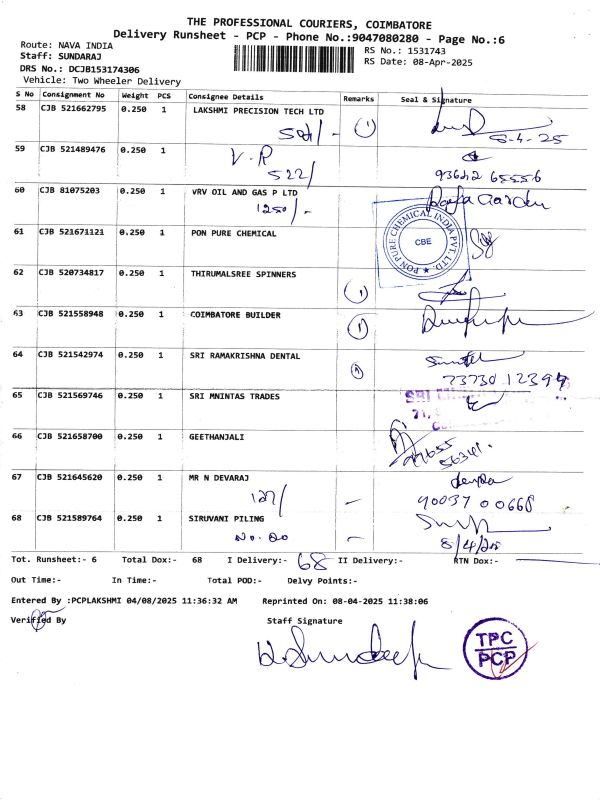 THE PROFESSIONAL COURIERS, COIMBATORE
Delivery Runsheet - PCP - Phone No.:9047080280 - Page No.:6
Route: NAVA INDIA
RS No.: 1531743
Staff: SUNDARAJ
RS Date: 08-Apr-2025
DRS No.: DCJB153174306
Vehicle: Two Wheeler Delivery
S No Consignment No Weight PCS Consignee Details Remarks Seal & Signature
58 CJB 521662795 0.250 1 LAKSHMI PRECISION TECH LTD
(1) 8-4-25
59 CJB 521489476 0.250 1 V.R
522/ 93642 65556
60 CJB 81075203 0.250 1 VRV OIL AND GAS P LTD
1250/-
61 CJB 521671121 0.250 1 PON PURE CHEMICAL
PON PURE CHEMICAL INDIA PVT. LTD. ★ CBE
62 CJB 520734817 0.250 1 THIRUMALSREE SPINNERS
(1)
63 CJB 521558948 0.250 1 COIMBATORE BUILDER
(1)
64 CJB 521542974 0.250 1 SRI RAMAKRISHNA DENTAL
(1)
65 CJB 521569746 0.250 1 SRI MNINTAS TRADES
SRI
71,
66 CJB 521658700 0.250 1 GEETHANJALI
67 CJB 521645620 0.250 1 MR N DEVARAJ
127/ - 90037 00668
68 CJB 521589764 0.250 1 SIRUVANI PILING
8/4/25
Tot. Runsheet:- 6 Total Dox:- 68 I Delivery:- 68 II Delivery:- RTN Dox:-
Out Time:- In Time:- Total POD:- Delvy Points:-
Entered By :PCPLAKSHMI 04/08/2025 11:36:32 AM Reprinted On: 08-04-2025 11:38:06
Verified By Staff Signature
TPC
PCP